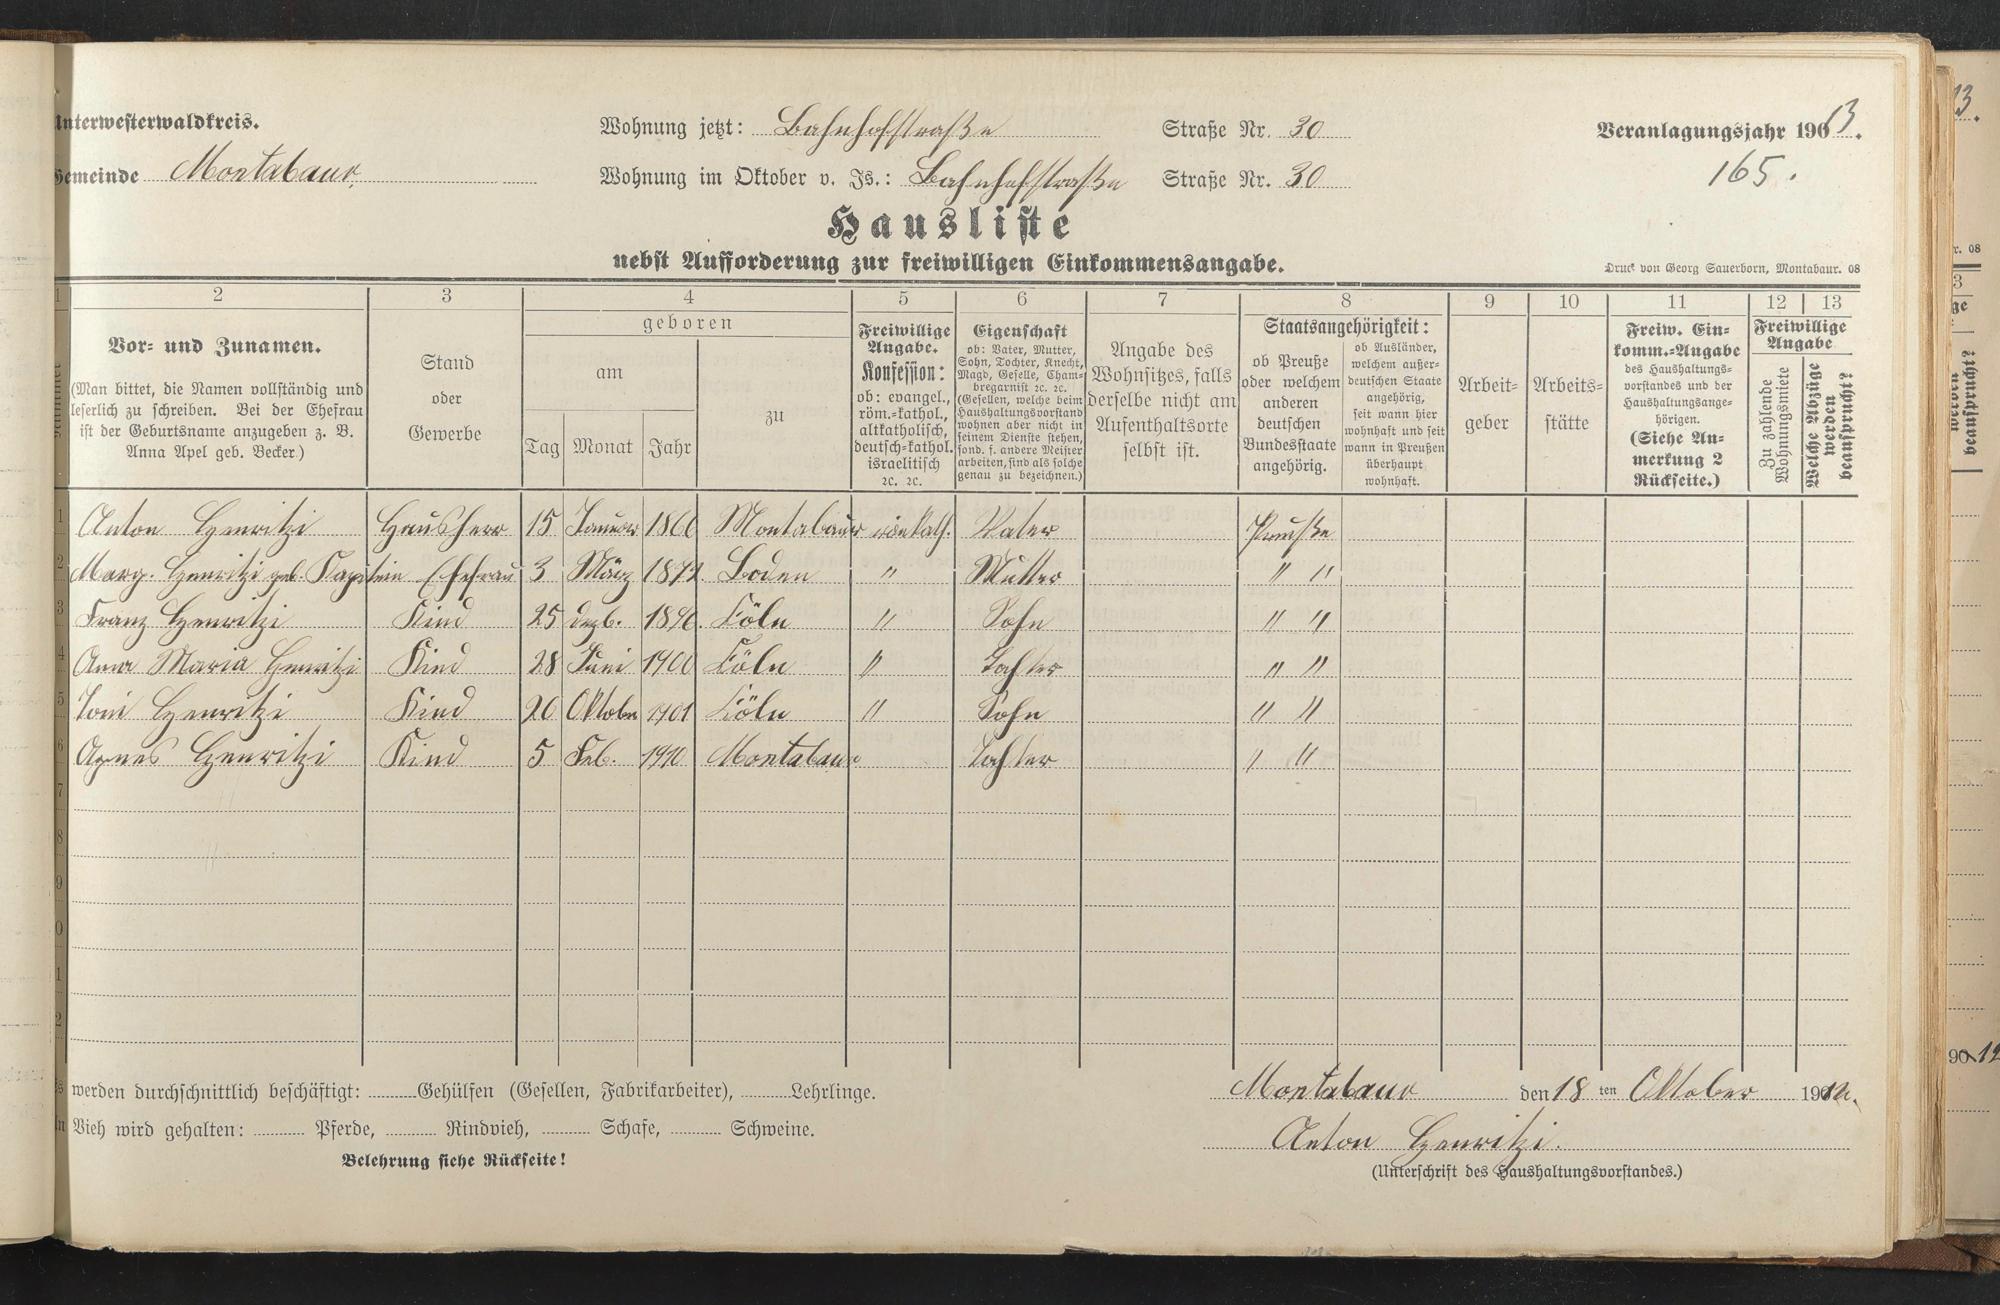 Unterwesterwaldkreis.
Gemeinde Montabaur.
Wohnung jetzt: Bahnhofstraße Straße Nr. 30
Wohnung im Oktober v. Js.: Bahnhofstraße Straße Nr. 30
Veranlagungsjahr 1913.
165.
Hausliste
nebst Aufforderung zur freiwilligen Einkommensangabe.
Druck von Georg Sauerborn, Montabaur. 08
1 2 3 4 5 6 7 8 9 10 11 12 13
Vor- und Zunamen.
(Man bittet, die Namen vollständig und
leserlich zu schreiben. Bei der Ehefrau
ist der Geburtsname anzugeben z. B.
Anna Apel geb. Becker.)
Stand
oder
Gewerbe
geboren
am
Tag Monat Jahr
zu
Freiwillige
Angabe.
Konfession:
ob: evangel.,
röm.-kathol.,
altkatholisch,
deutsch-kathol.
israelitisch
ꝛc. ꝛc.
Eigenschaft
ob: Vater, Mutter,
Sohn, Tochter, Knecht,
Magd, Geselle, Cham-
bregarnist ꝛc. ꝛc.
(Gesellen, welche beim
Haushaltungsvorstand
wohnen aber nicht in
seinem Dienste stehen,
sond. f. andere Meister
arbeiten, sind als solche
genau zu bezeichnen.)
Angabe des
Wohnsitzes, falls
derselbe nicht am
Aufenthaltsorte
selbst ist.
Staatsangehörigkeit:
ob Preuße
oder welchem
anderen
deutschen
Bundesstaate
angehörig.
ob Ausländer,
welchem außer-
deutschen Staate
angehörig,
seit wann hier
wohnhaft und seit
wann in Preußen
überhaupt
wohnhaft.
Arbeit-
geber
Arbeits-
stätte
Freiw. Ein-
komm.-Angabe
des Haushaltungs-
vorstandes und der
Haushaltungsange-
hörigen.
(Siehe An-
merkung 2
Rückseite.)
Freiwillige
Angabe
Zu zahlende
Wohnungsmiete
Welche Abzüge
werden
beansprucht?
1 Anton Henritzi Hausherr 15 Januar 1866 Montabaur Vater Preuße
2 Marg. Henritzi geb. Kapstein Ehefrau 3 März 1872 Boden " Mutter " "
3 Franz Henritzi Kind 25 Dezb. 1896. Köln " Sohn " "
4 Anna Maria Henritzi Kind 28 Juni 1900 Köln " Tochter " "
5 Toni Henritzi Kind 20 Oktober 1901 Köln " Sohn " "
6 Agnes Henritzi Kind 5 Feb. 1910 Montabaur Tochter " "
7
8
9
0
1
2
werden durchschnittlich beschäftigt: Gehülfen (Gesellen, Fabrikarbeiter), Lehrlinge.
Vieh wird gehalten: Pferde, Rindvieh, Schafe, Schweine.
Belehrung siehe Rückseite!
Montabaur den 18 ten Oktober 1912.
Anton Henritzi.
(Unterschrift des Haushaltungsvorstandes.)